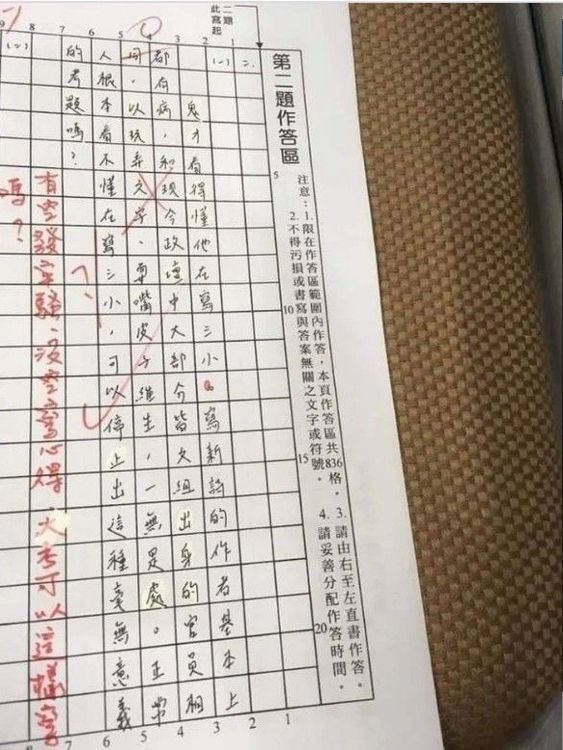 二題
此寫起
第二題作答區
注意：1.限在作答區範圍內作答，本頁作答區共836格。 3.請由右至左直書作答。
2.不得污損或書寫與答案無關之文字或符號。 4.請妥善分配作答時間。
二、
(一)鬼才看得懂他在寫三小。寫新詩的作者基本上
都有病，和現今政壇中大部分皆文組出身的官員相
同，以玩弄文學、耍嘴皮子維生，一無是處。正常
人根本看不懂在寫三小，可以停止出這種毫無意義
的考題嗎？
有空發牢騷，沒空寫心得 大考可以這樣寫
嗎？
(二)